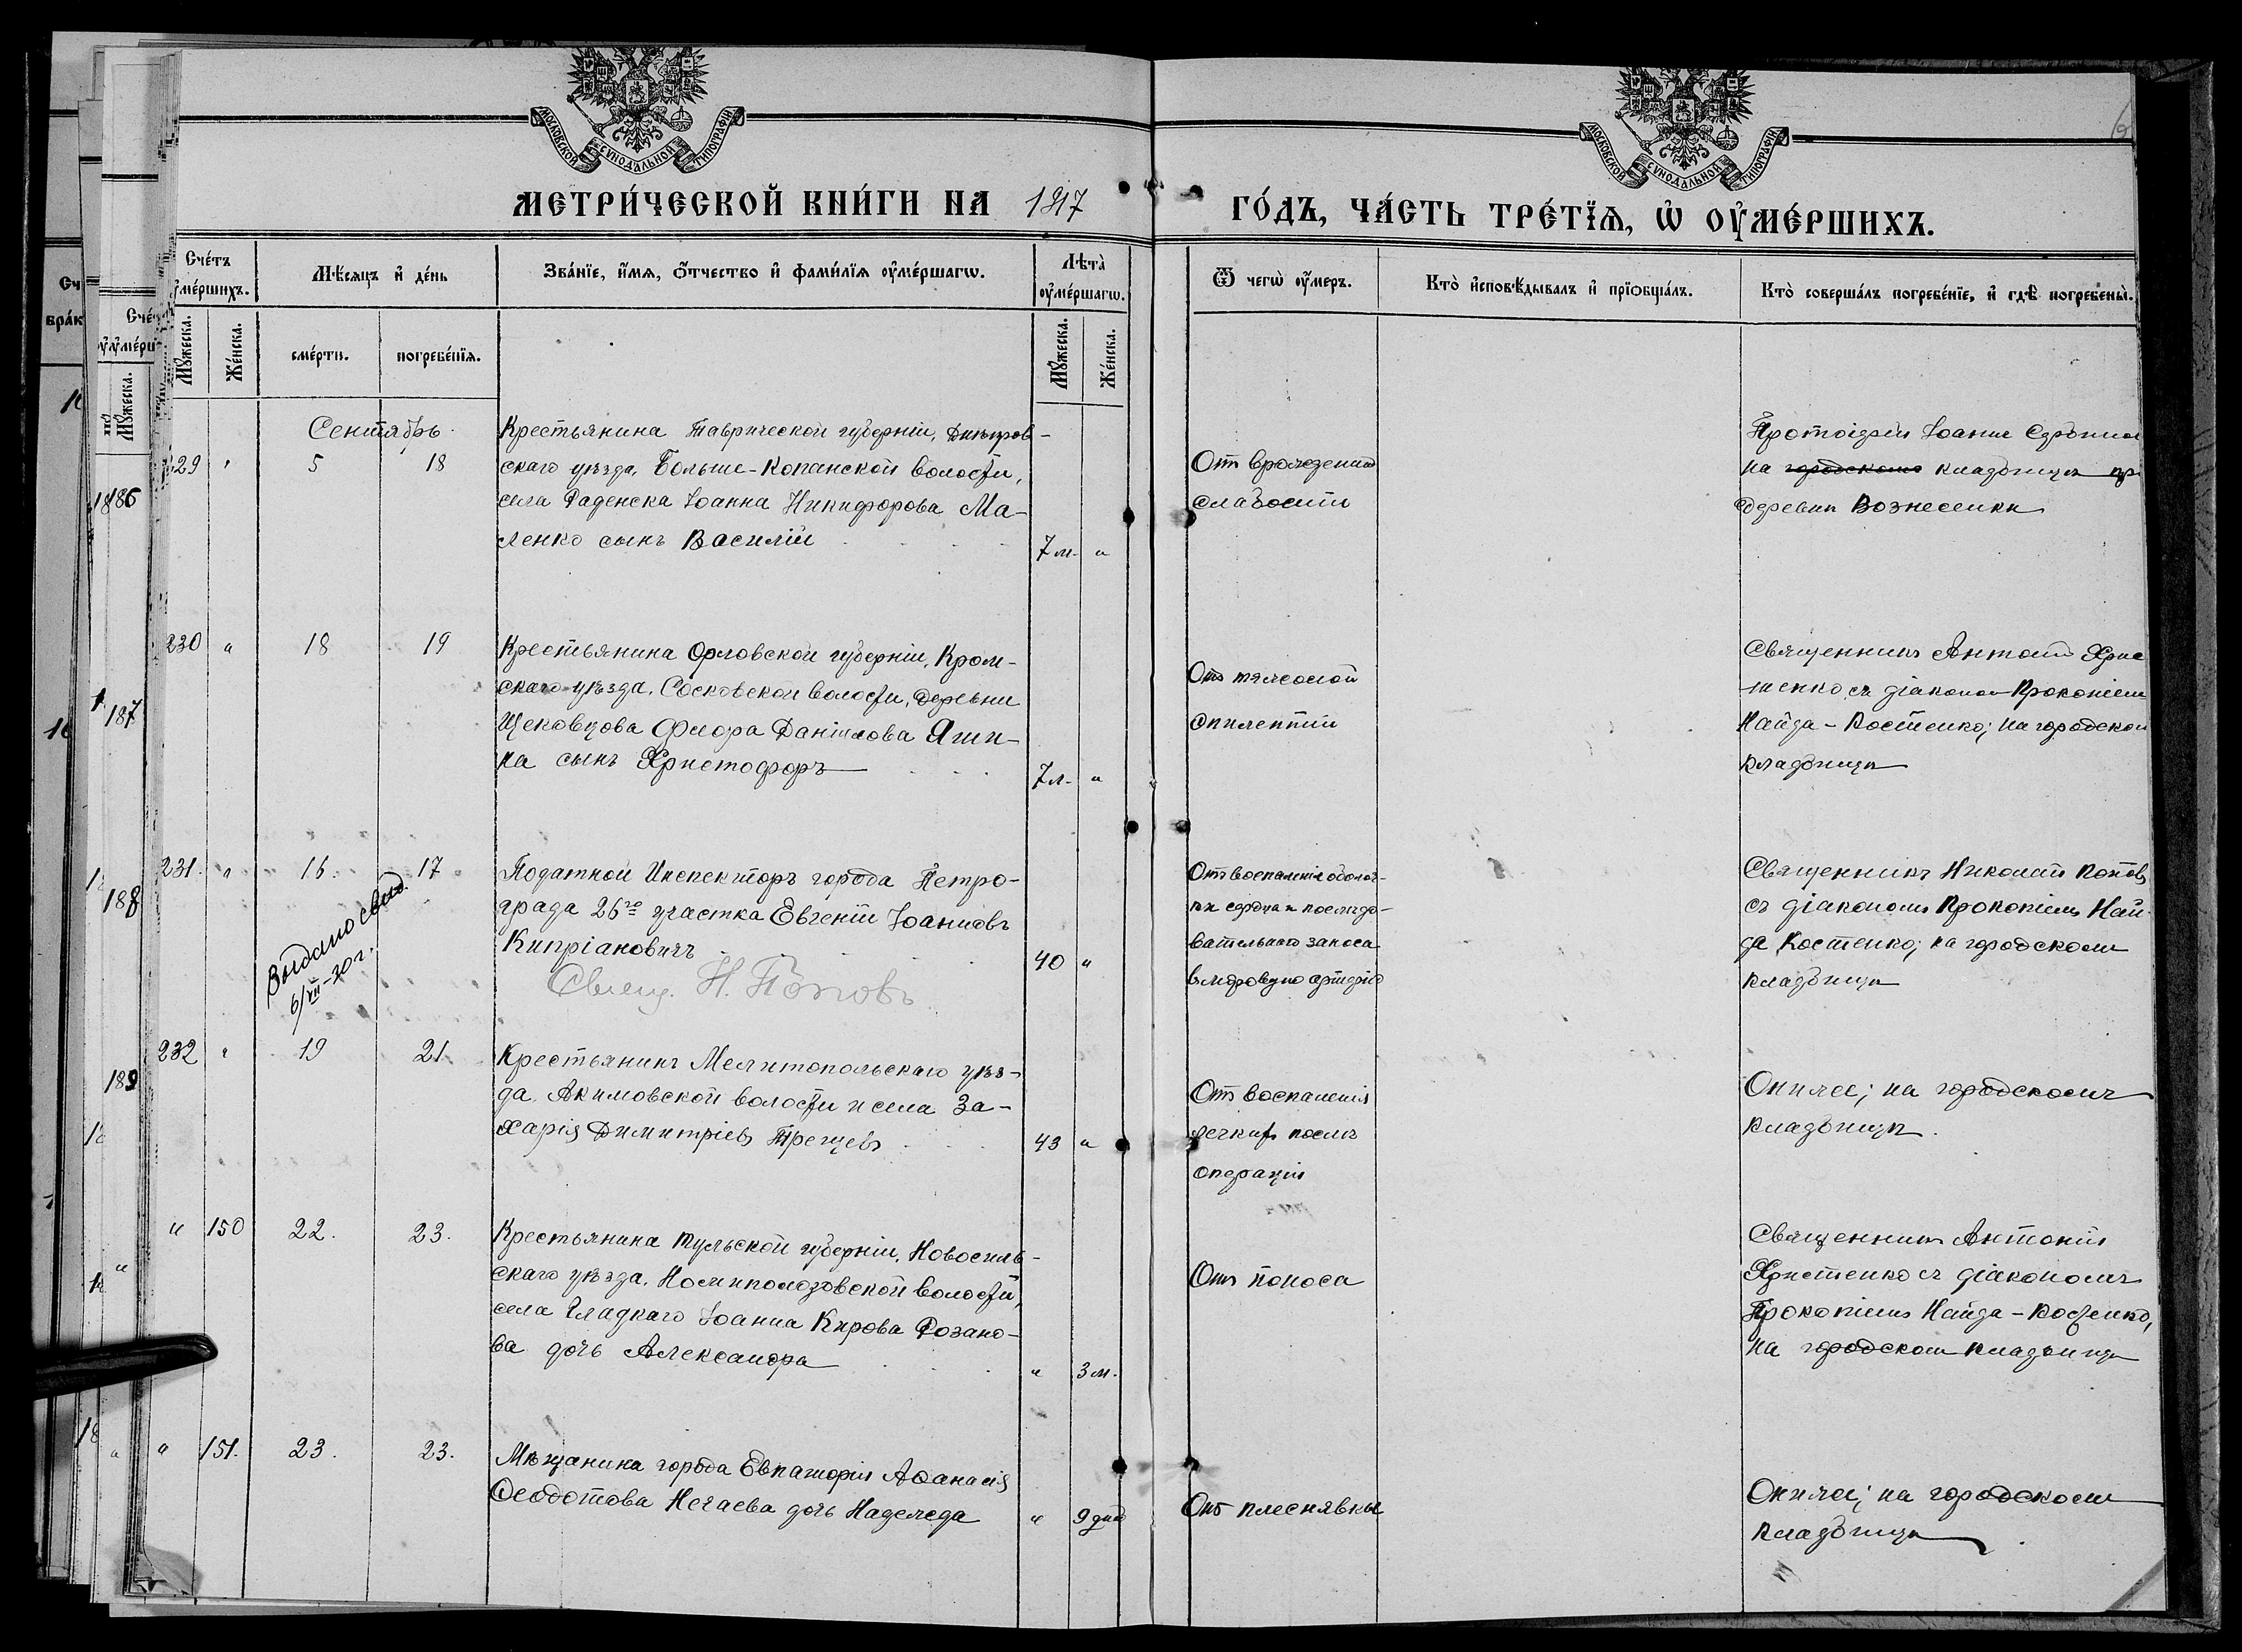 МОСКОВСКОЙ СѴНОДАЛЬНОЙ ТИПОГРАФІИ
МОСКОВСКОЙ СѴНОДАЛЬНОЙ ТИПОГРАФІИ
МЕТРИ́ЧЕСКОЙ КНИ́ГИ НА 1917
ГО́ДЪ, ЧА́СТЬ ТРЕ́ТЇѦ, Ѡ҆ ОУ҆МЕ́РШИХЪ.
Сче́тъ
оу҆ме́ршихъ.
Мѣ́сяцъ и҆ де́нь
Зва́нїе, и҆́мя, ѻ҆́тчество и҆ фами́лїя оу҆ме́ршагѡ.
Лѣта̀
оу҆ме́ршагѡ.
Ѿ чегѡ̀ оу҆́меръ.
Кто̀ и҆сповѣ́дывалъ и҆ прїѡбща́лъ.
Кто̀ соверша́лъ погребе́нїе, и҆ гдѣ̀ погребены̀.
Мꙋ́жеска.
Же́нска.
сме́рти.
погребе́нїя.
Мꙋ́жеска.
Же́нска.
Сентябрь.
229 " 5 18
Крестьянина Таврической губерніи, Днѣпров-
скаго уѣзда, Больше-Копанской волости,
села Раденска Іоанна Никифорова Ма-
ленко сынъ Василій
7 м. "
Отъ врожденной
слабости
Протоіерей Іоаннъ
на городскомъ кладбищѣ при
деревни Вознесенки
230 " 18 19
Крестьянина Орловской губерніи, Кром-
скаго уѣзда, Сосковской волости, деревни
Щековцова Флора Даніилова Яши-
на сынъ Христофоръ
7 л. "
Отъ тяжолой
эпилептіи
Священникъ Антоній Хрис
тенко съ діакономъ Прокопіемъ
Найда-Костенко; на городском
кладбищѣ
231. " 16. 17
Податной Инспекторъ города Петро-
града 26го участка Евгеній Іоанновъ
Кипріановичъ
40 "
Свящ. Н. Поповъ
Выдано свид.
6/VII-20 г.
Отъ воспаленія оболоч-
ки сердца и послѣдо-
вательнаго заноса
въ мозговую артерію
Священникъ Николай Поповъ
съ діакономъ Прокопіемъ Най-
да Костенко; на городскомъ
кладбищѣ
232 " 19 21
Крестьянинъ Мелитопольскаго уѣз-
да, Акимовской волости и села За-
харія Димитріевъ Трещевъ
43 "
Отъ воспаленія
легкихъ послѣ
операціи
Они же; на городскомъ
кладбищѣ.
" 150 22. 23.
Крестьянина Тульской губерніи, Новосиль-
скаго уѣзда, волости,
села Гладкаго Іоанна Кирова Розано-
ва дочь Александра
" 3 м.
Отъ поноса
Священникъ Антоній
Христенко съ діакономъ
Прокопіемъ Найда-Костенко,
на городскомъ кладбищѣ
" 151. 23. 23.
Мѣщанина города Евпаторіи Аѳанасія
Ѳеодотова Нечаева дочь Надежда
" 9 дней
Отъ плеснявки
Они же; на городскомъ
кладбищѣ
186
187
188
189